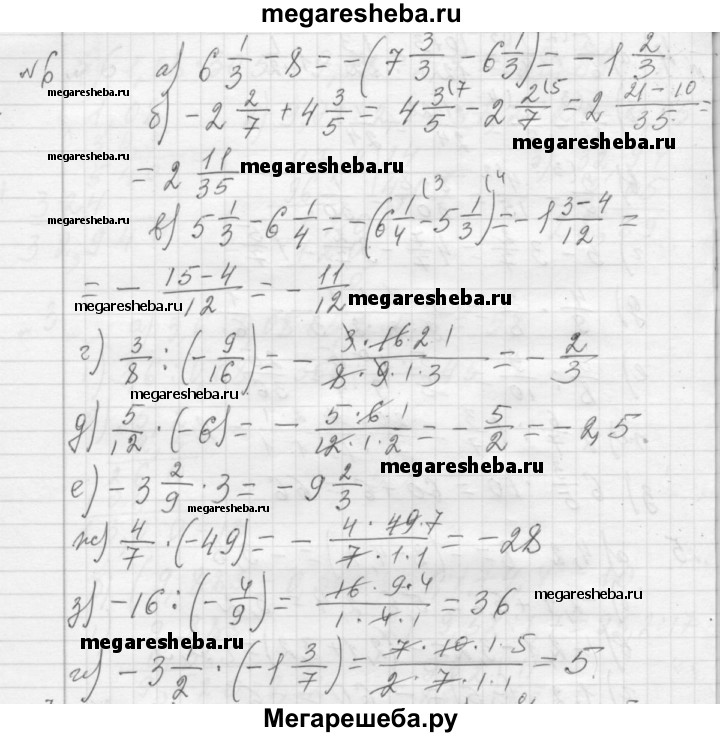 megaresheba.ru
№6 а) 6 1/3 - 8 = -(7 3/3 - 6 1/3) = -1 2/3.
megaresheba.ru
б) -2 2/7 + 4 3/5 = 4 3/5 (7 - 2 2/7 (5 = 2 (21-10)/35 =
megaresheba.ru
= 2 11/35
megaresheba.ru
в) 5 1/3 - 6 1/4 = -(6 1/4 (3 - 5 1/3 (4) = -1 (3-4)/12 =
= - (15-4)/12 = - 11/12
megaresheba.ru
megaresheba.ru
г) 3/8 : (- 9/16) = - (3·16·2·1)/(8·9·1·3) = - 2/3
megaresheba.ru
д) 5/12 · (-6) = - (5·6·1)/(12·1·2) = - 5/2 = -2,5.
megaresheba.ru
е) -3 2/9 · 3 = -9 2/3
megaresheba.ru
ж) 4/7 · (-49) = - (4·49·7)/(7·1·1) = -28
з) -16 : (- 4/9) = (16·9·4)/(1·4·1) = 36
megaresheba.ru
megaresheba.ru
и) -3 1/2 · (-1 3/7) = (7·10·1·5)/(2·7·1·1) = 5.
Мегарешеба.ру